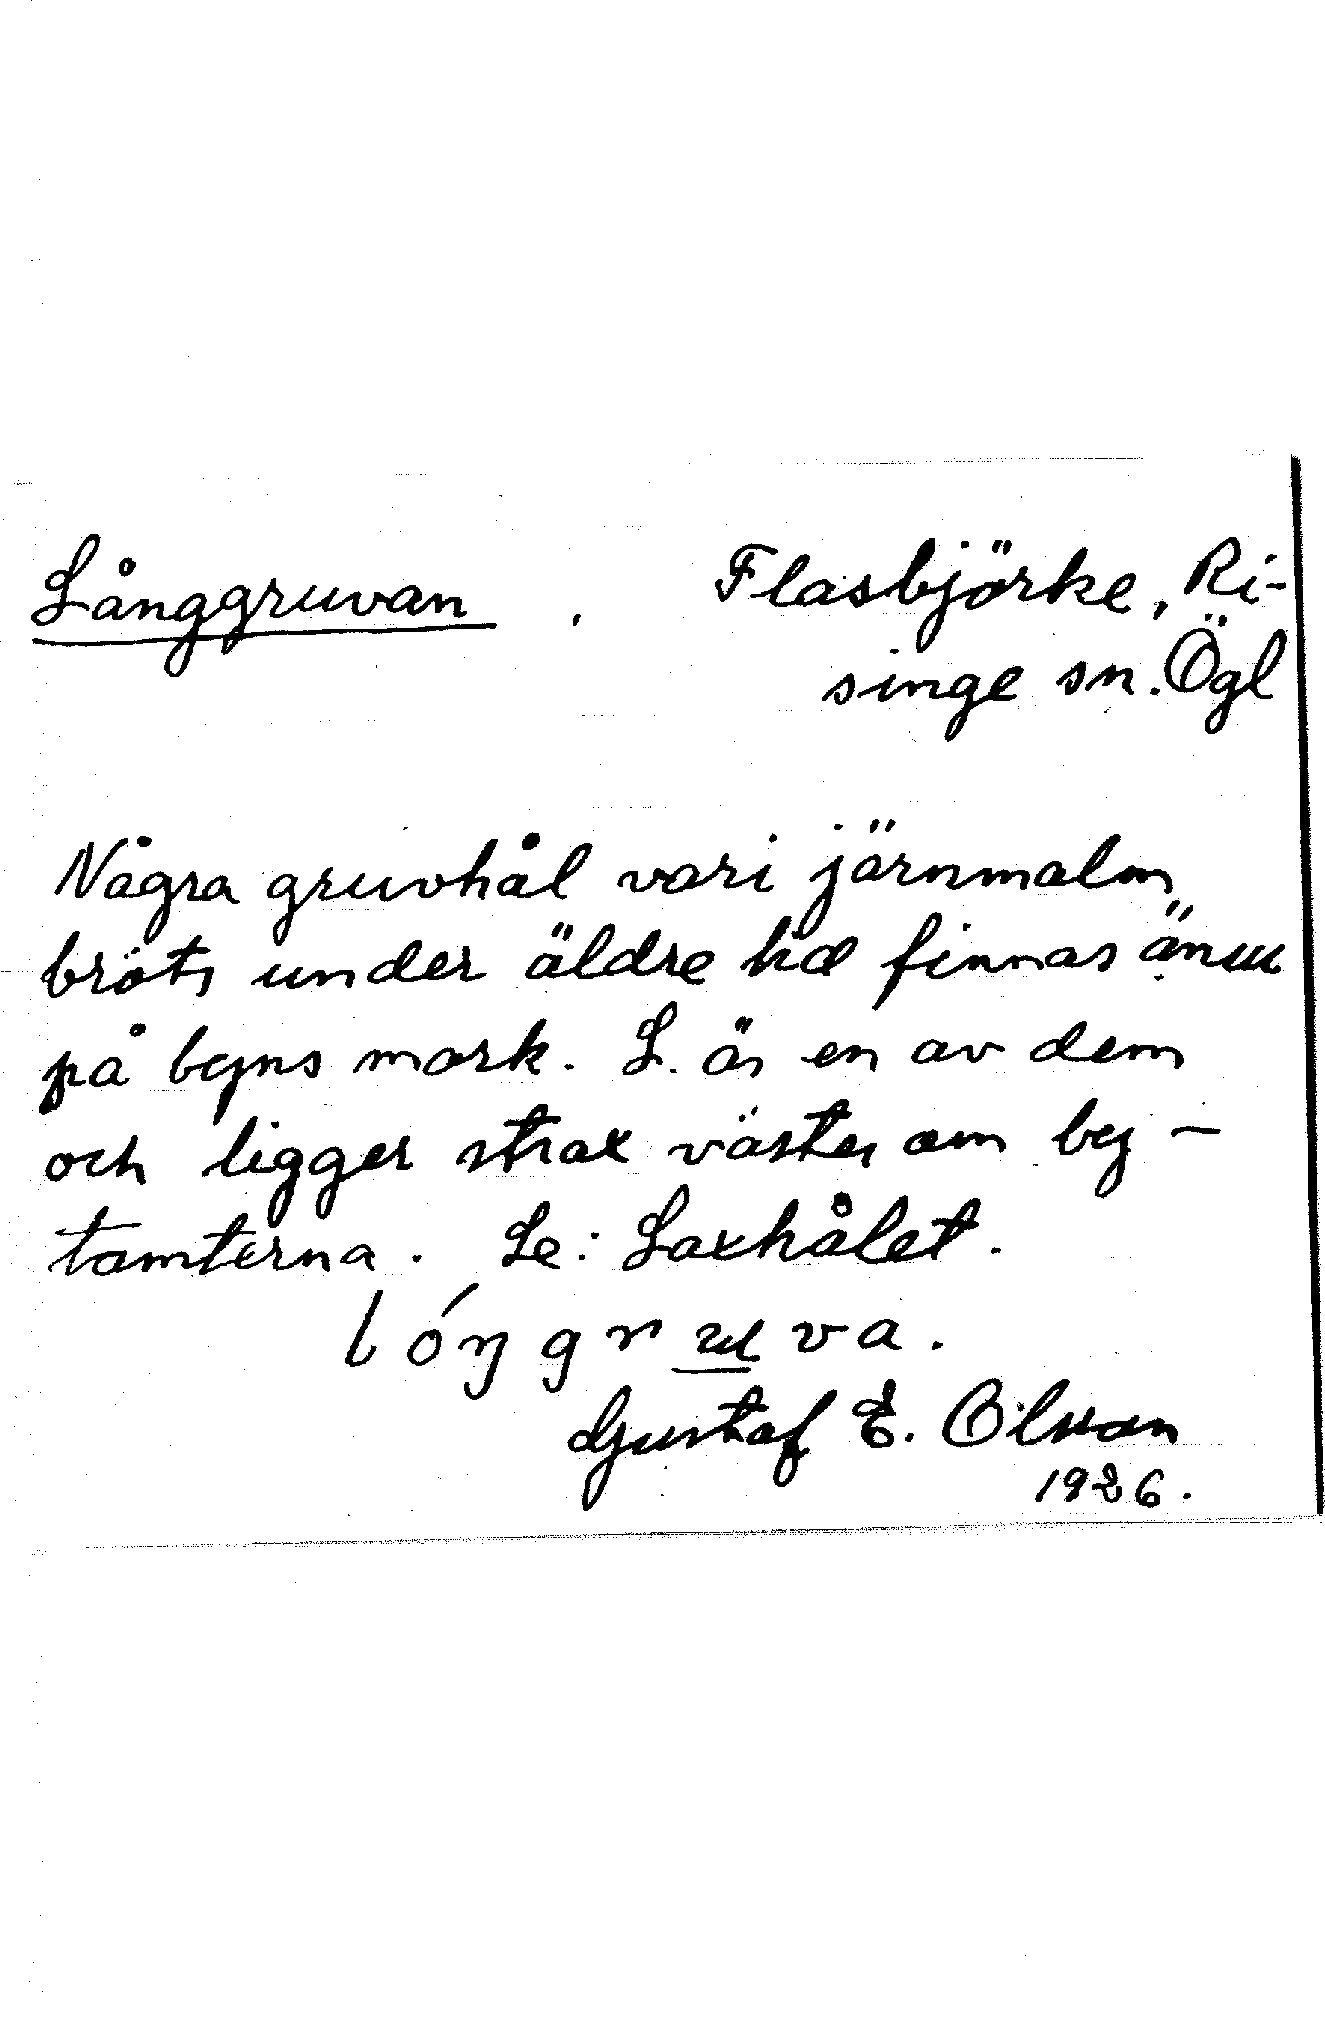 Långgruvan. Flasbjörke, Ri-
singe sn. Ögl
Några gruvhål vari järnmalm
bröts under äldre tid finnas ännu
på byns mark. L. är en av dem
och ligger strax väster om by-
tomterna. Se: Laxhålet.
lóŋgruva.
Gustaf E. Olsson
1926.